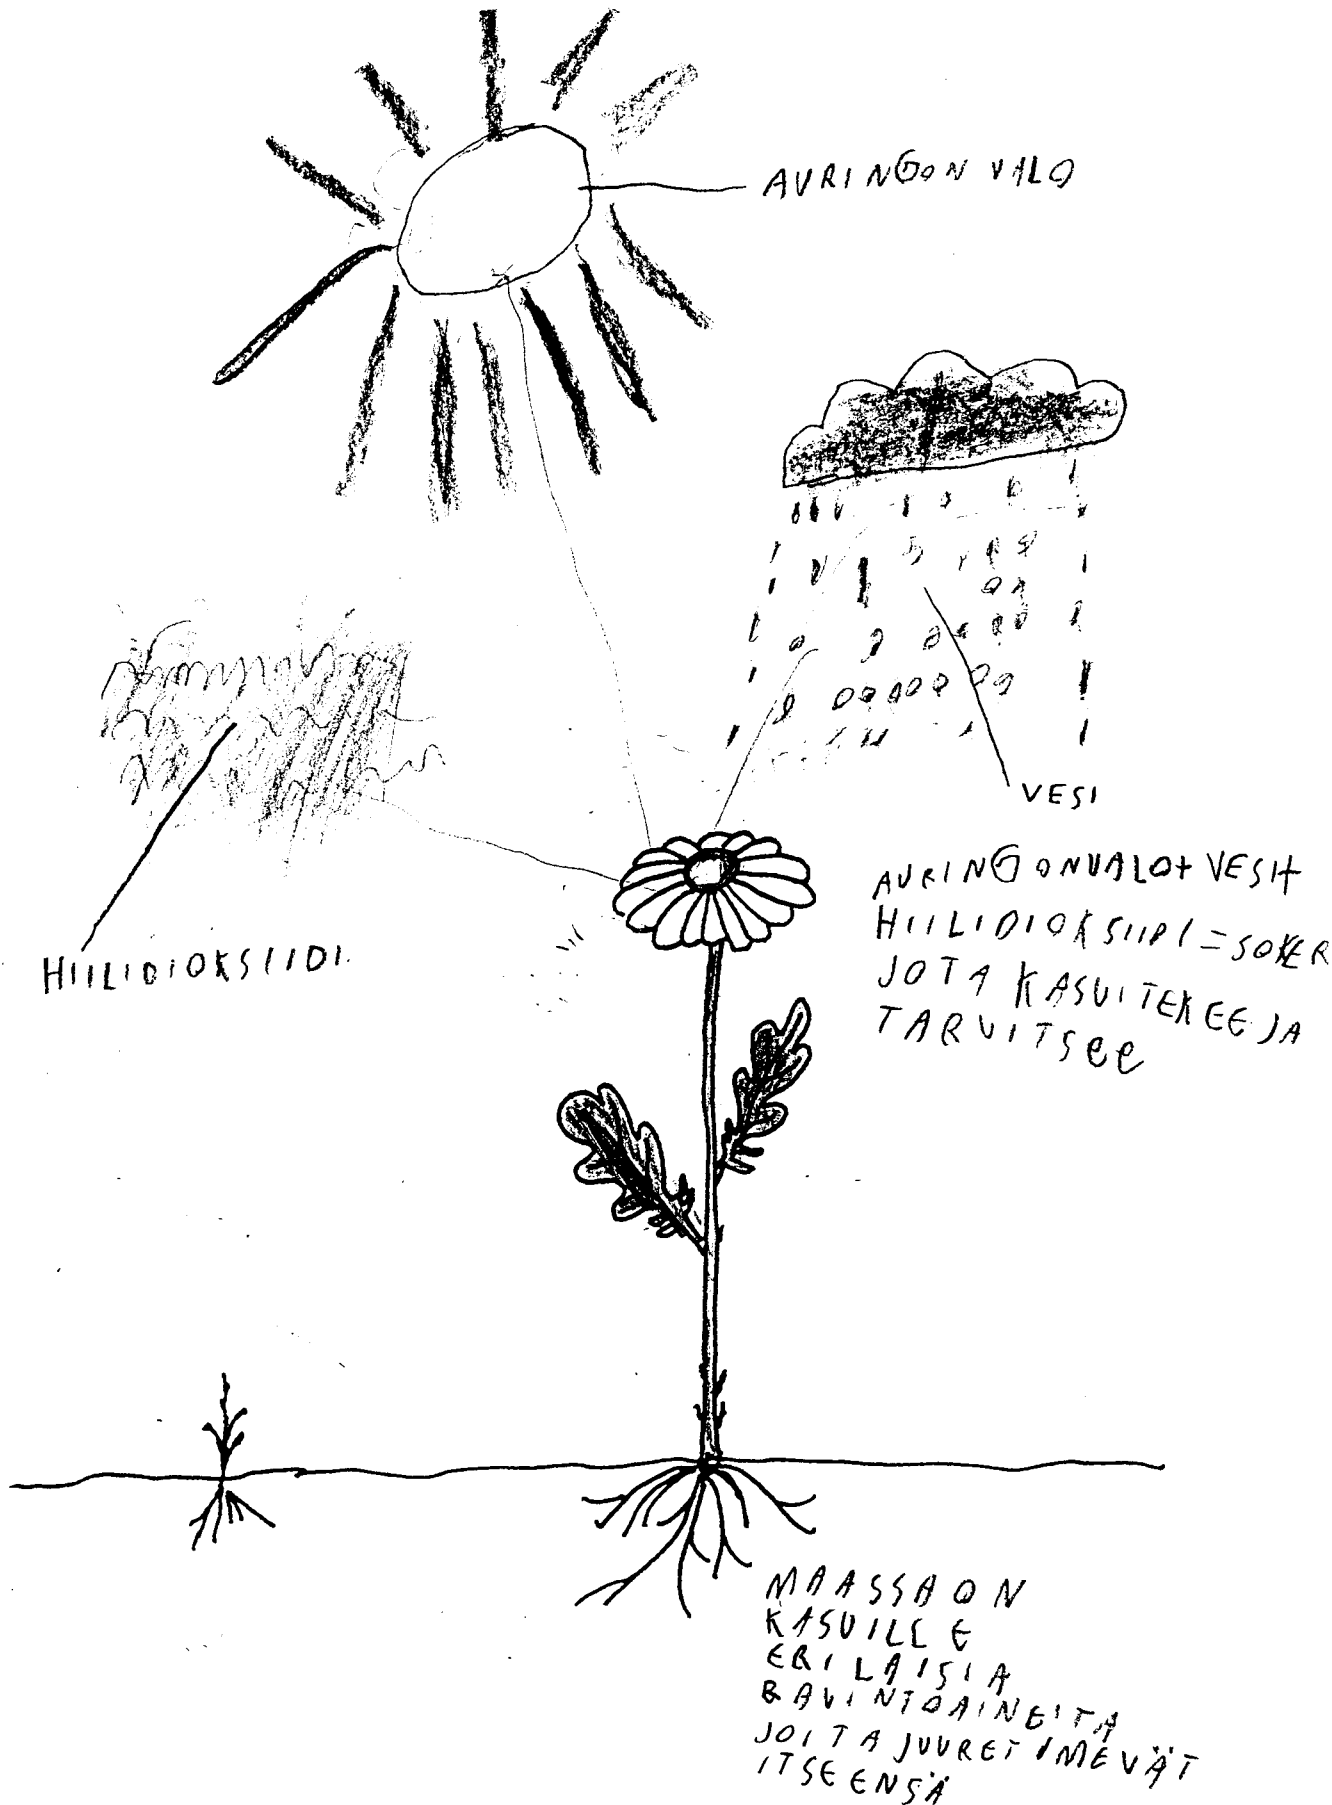 AURINGON VALO
VESI
HIILIDIOKSIIDI.
AURINGONVALO+ VESI+
HIILIDIOKSIIDI = SOKER
JOTA KASVITEKEE JA
TARVITSee
MAASSA ON
KASVILLE
ERILAISIA
RAVINTOAINEITA
JOITA JUURET IMEVÄT
ITSEENSÄ